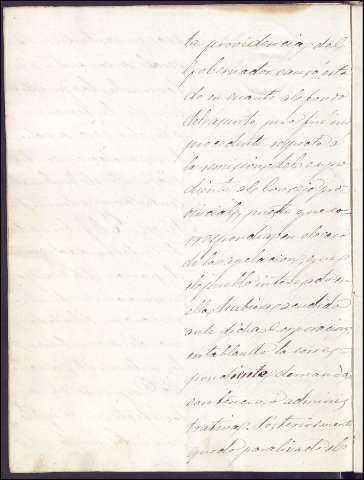 ta providencia, del
Gobernador causó esta
do en cuanto al fondo
del asunto, pero fué im
procedente respecto á
la remision del espe
diente al Consejo pro
vincial, puesto que co
rrespondia en el caso
de la apelacion, que
el pueblo interesado en
ella hubiera acudido
ante dicha Corporacion,
entablando la corres
pondiente demanda
contencioso adminis
trativa. Posteriormente
quedó paralizado el